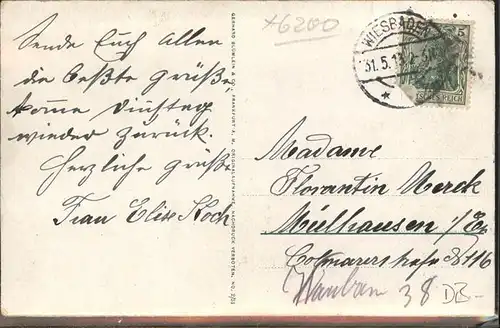 Sende Euch Allen
die beßte Grüße
komme Dinstag
wieder zurück.
Herzliche Grüße
Frau Elise Koch
GEBHARD BLÜMLEIN & CO., FRANKFURT A. M. ORIGINALAUFNAHME. NACHDRUCK VERBOTEN. NO.
x6200
WIESBADEN
31.5.1
5
REICH
Madame
Florantin Merck
Mülhausen i/Els
Colmarerstraße № 116
38 DZ-